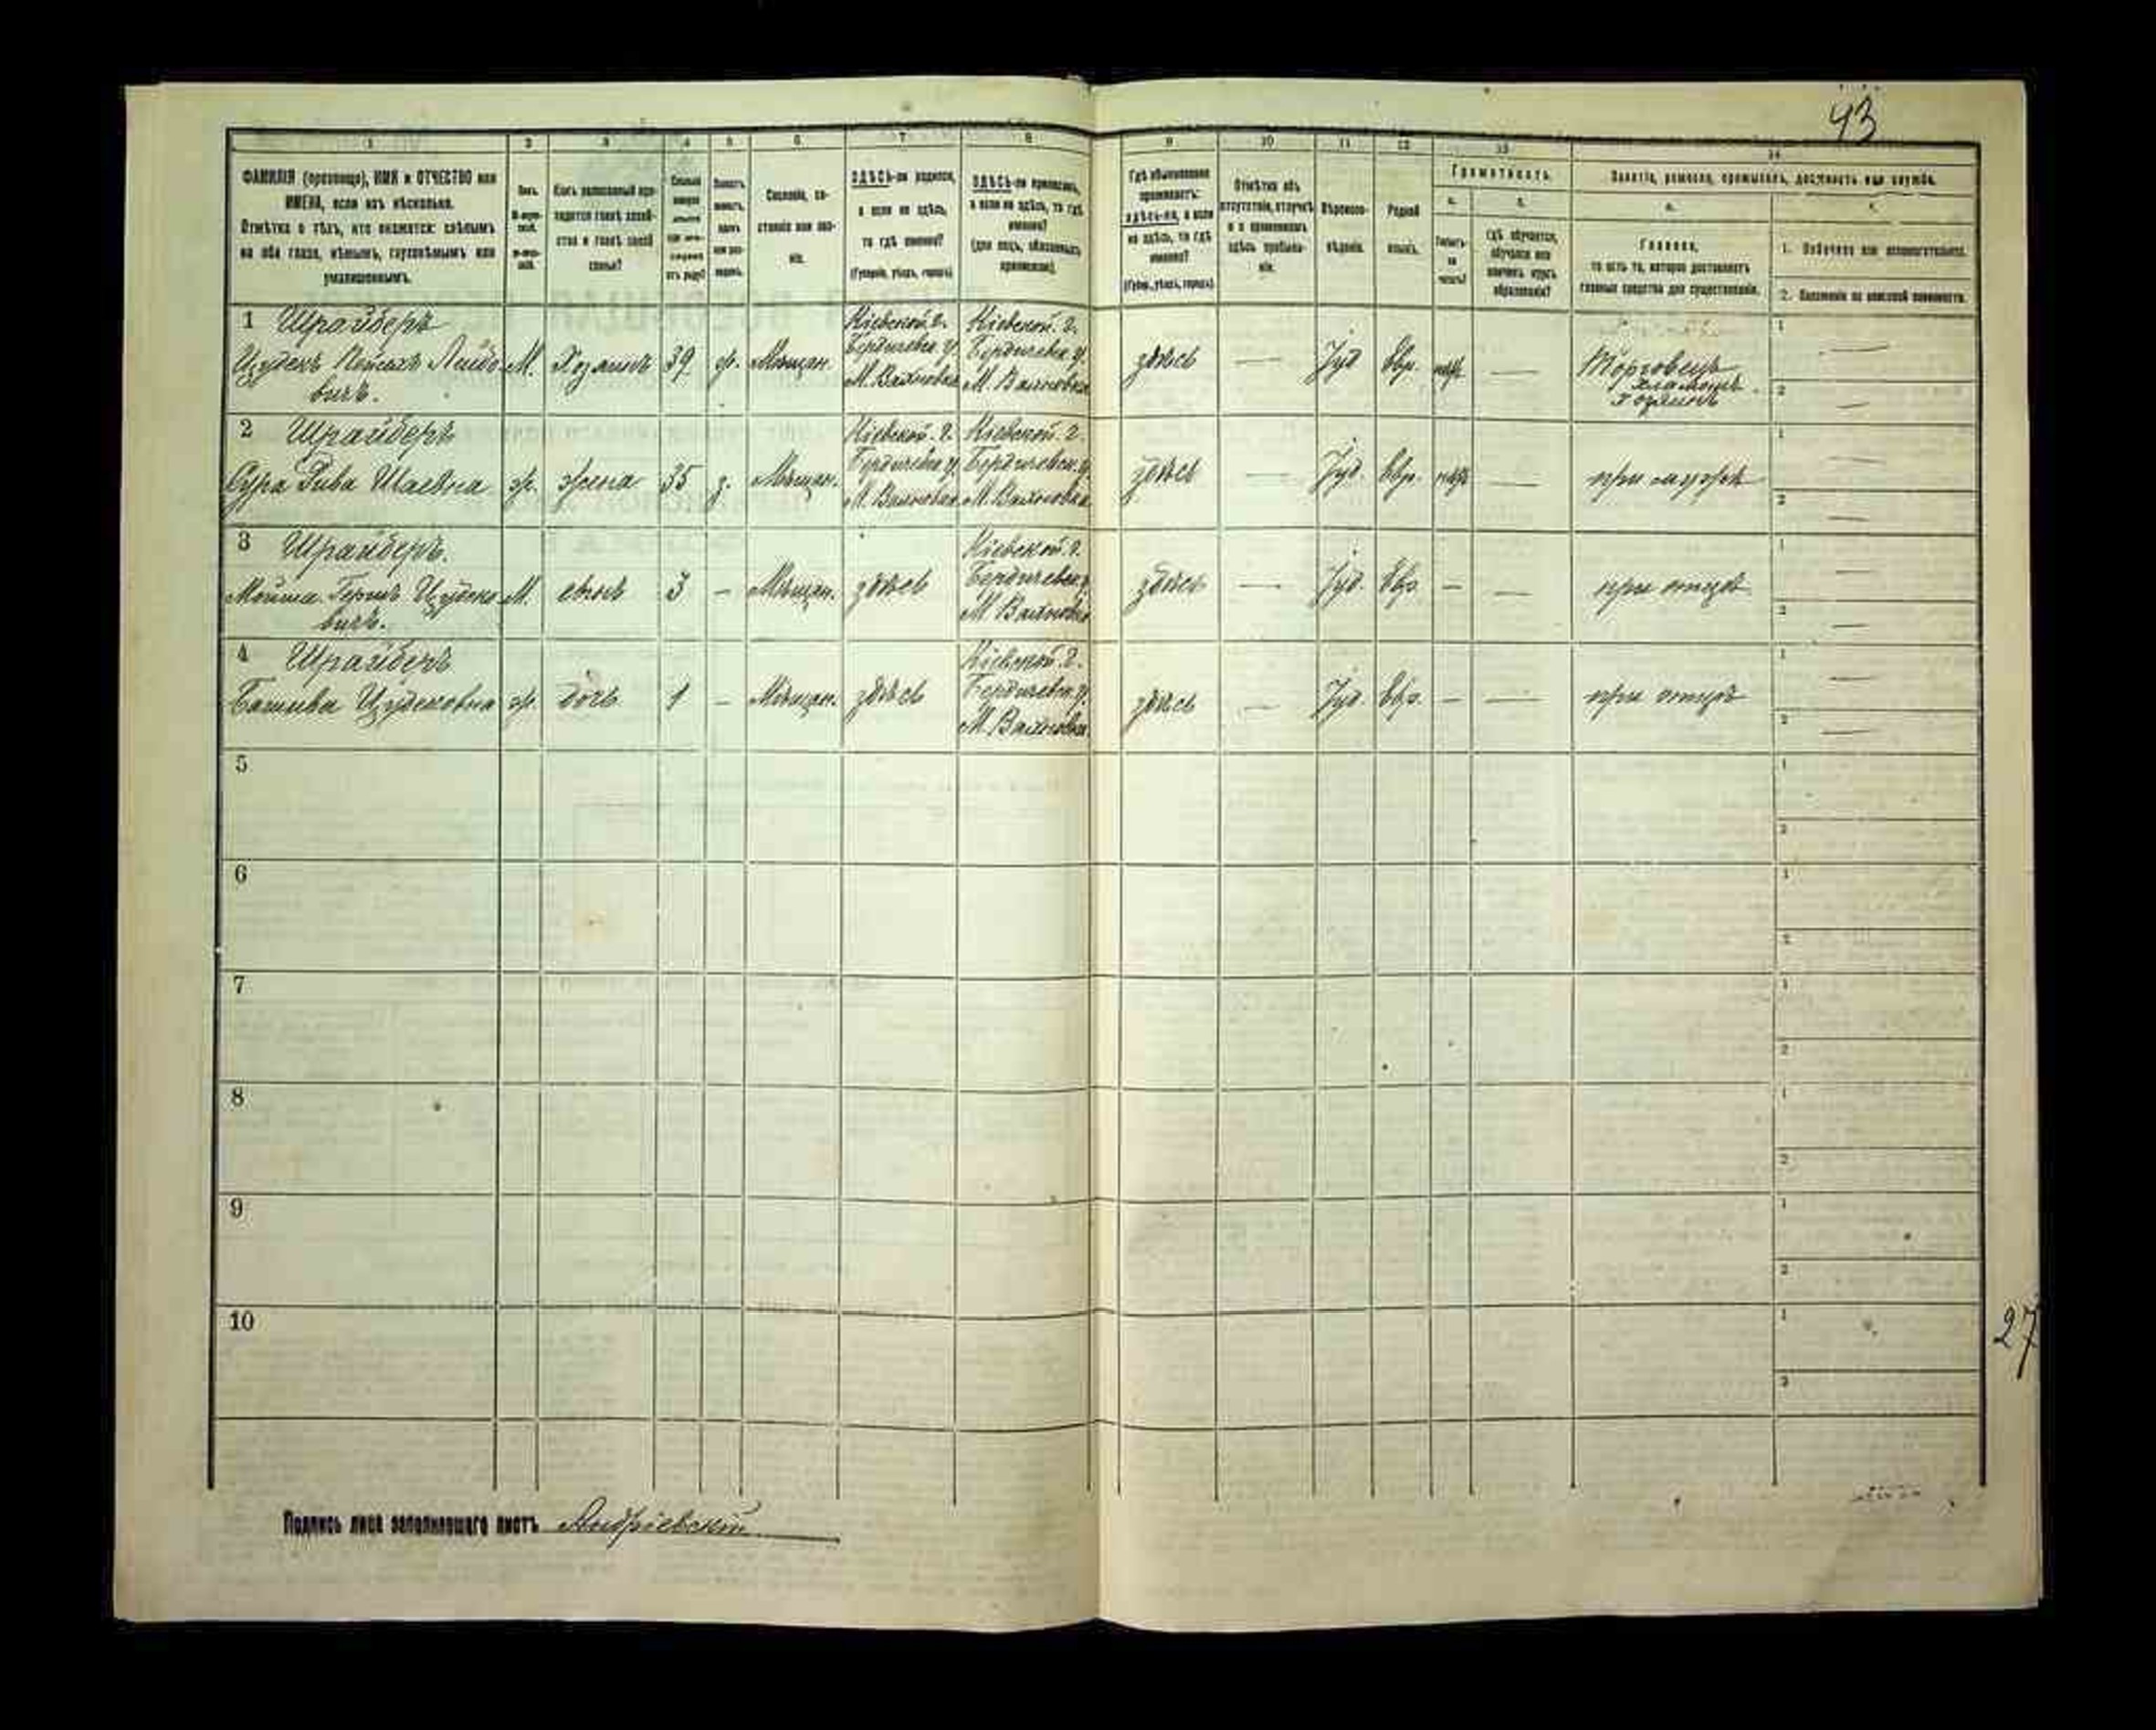 93
1 2 3 4 5 6 7 8 9 10 11 12 13 14
ФАМИЛІЯ (прозвище), ИМЯ и ОТЧЕСТВО или
ИМЕНА, если ихъ нѣсколько.
Отмѣтка о тѣхъ, кто окажется: слѣпымъ
на оба глаза, нѣмымъ, глухонѣмымъ или
умалишеннымъ.
Полъ.
Какъ записанный при-
ходится главѣ хозяй-
ства и главѣ своей
семьи?
Сословіе, со-
стояніе или зва-
ніе.
ЗДѢСЬ-ли родился,
а если не здѣсь,
то гдѣ именно?
(Губернія, уѣздъ, городъ)
ЗДѢСЬ-ли приписанъ,
а если не здѣсь, то гдѣ
именно?
(для лицъ, обязанныхъ
припискою).
Гдѣ обыкновенно
проживаетъ:
здѣсь-ли, а если
не здѣсь, то гдѣ
именно?
(Губер., уѣздъ, городъ).
Отмѣтка объ
отсутствіи, отлучкѣ
и о временномъ
здѣсь пребыва-
ніи.
Вѣроиспо-
вѣданіе.
Родной
языкъ.
Грамотность.
а.
б.
Умѣетъ-
ли
читать?
Гдѣ обучается,
обучался или
кончилъ курсъ
образованія?
Занятіе, ремесло, промыселъ, должность или служба.
а.
Главное,
то есть то, которое доставляетъ
главныя средства для существованія.
1. Побочное или вспомогательное.
2. Положеніе по воинской повинности.
1 Шрайберъ
Цудекъ Пейсахъ Лейбо
вичъ.
М. Хозяинъ 39
Мѣщан.
Кіевской. г.
Бердичевск. у.
М. Вахновка
Кіевской. г.
Бердичевск. у.
М. Вахновка
здѣсь — Іуд Евр. —
Торговецъ
хозяинъ
1 —
2 —
2 Шрайберъ
Сура Рива Шаевна
ж. жена 35 з. Мѣщан.
Кіевской. г.
Бердичевск. у.
М. Вахновка
Кіевской. г.
Бердичевск. у.
М. Вахновка
здѣсь — Іуд. Евр. —
при мужѣ
1 —
2 —
3 Шрайберъ.
Мойша Гершъ Цудеко
вичъ.
М. сынъ 3 — Мѣщан. здѣсь
Кіевской. г.
Бердичевск. у.
М. Вахновка
здѣсь — Іуд. Евр. — —
при отцѣ
1 —
2 —
4 Шрайберъ
Башива Цудековна
ж. дочь 1 — Мѣщан. здѣсь
Кіевской. г.
Бердичевск. у.
М. Вахновка
здѣсь — Іуд. Евр. — —
при отцѣ
1 —
2 —
5
1
2
6
1
2
7
1
2
8
1
2
9
1
2
10
1
2
27
Подпись лица заполнившаго листъ Андріевскій